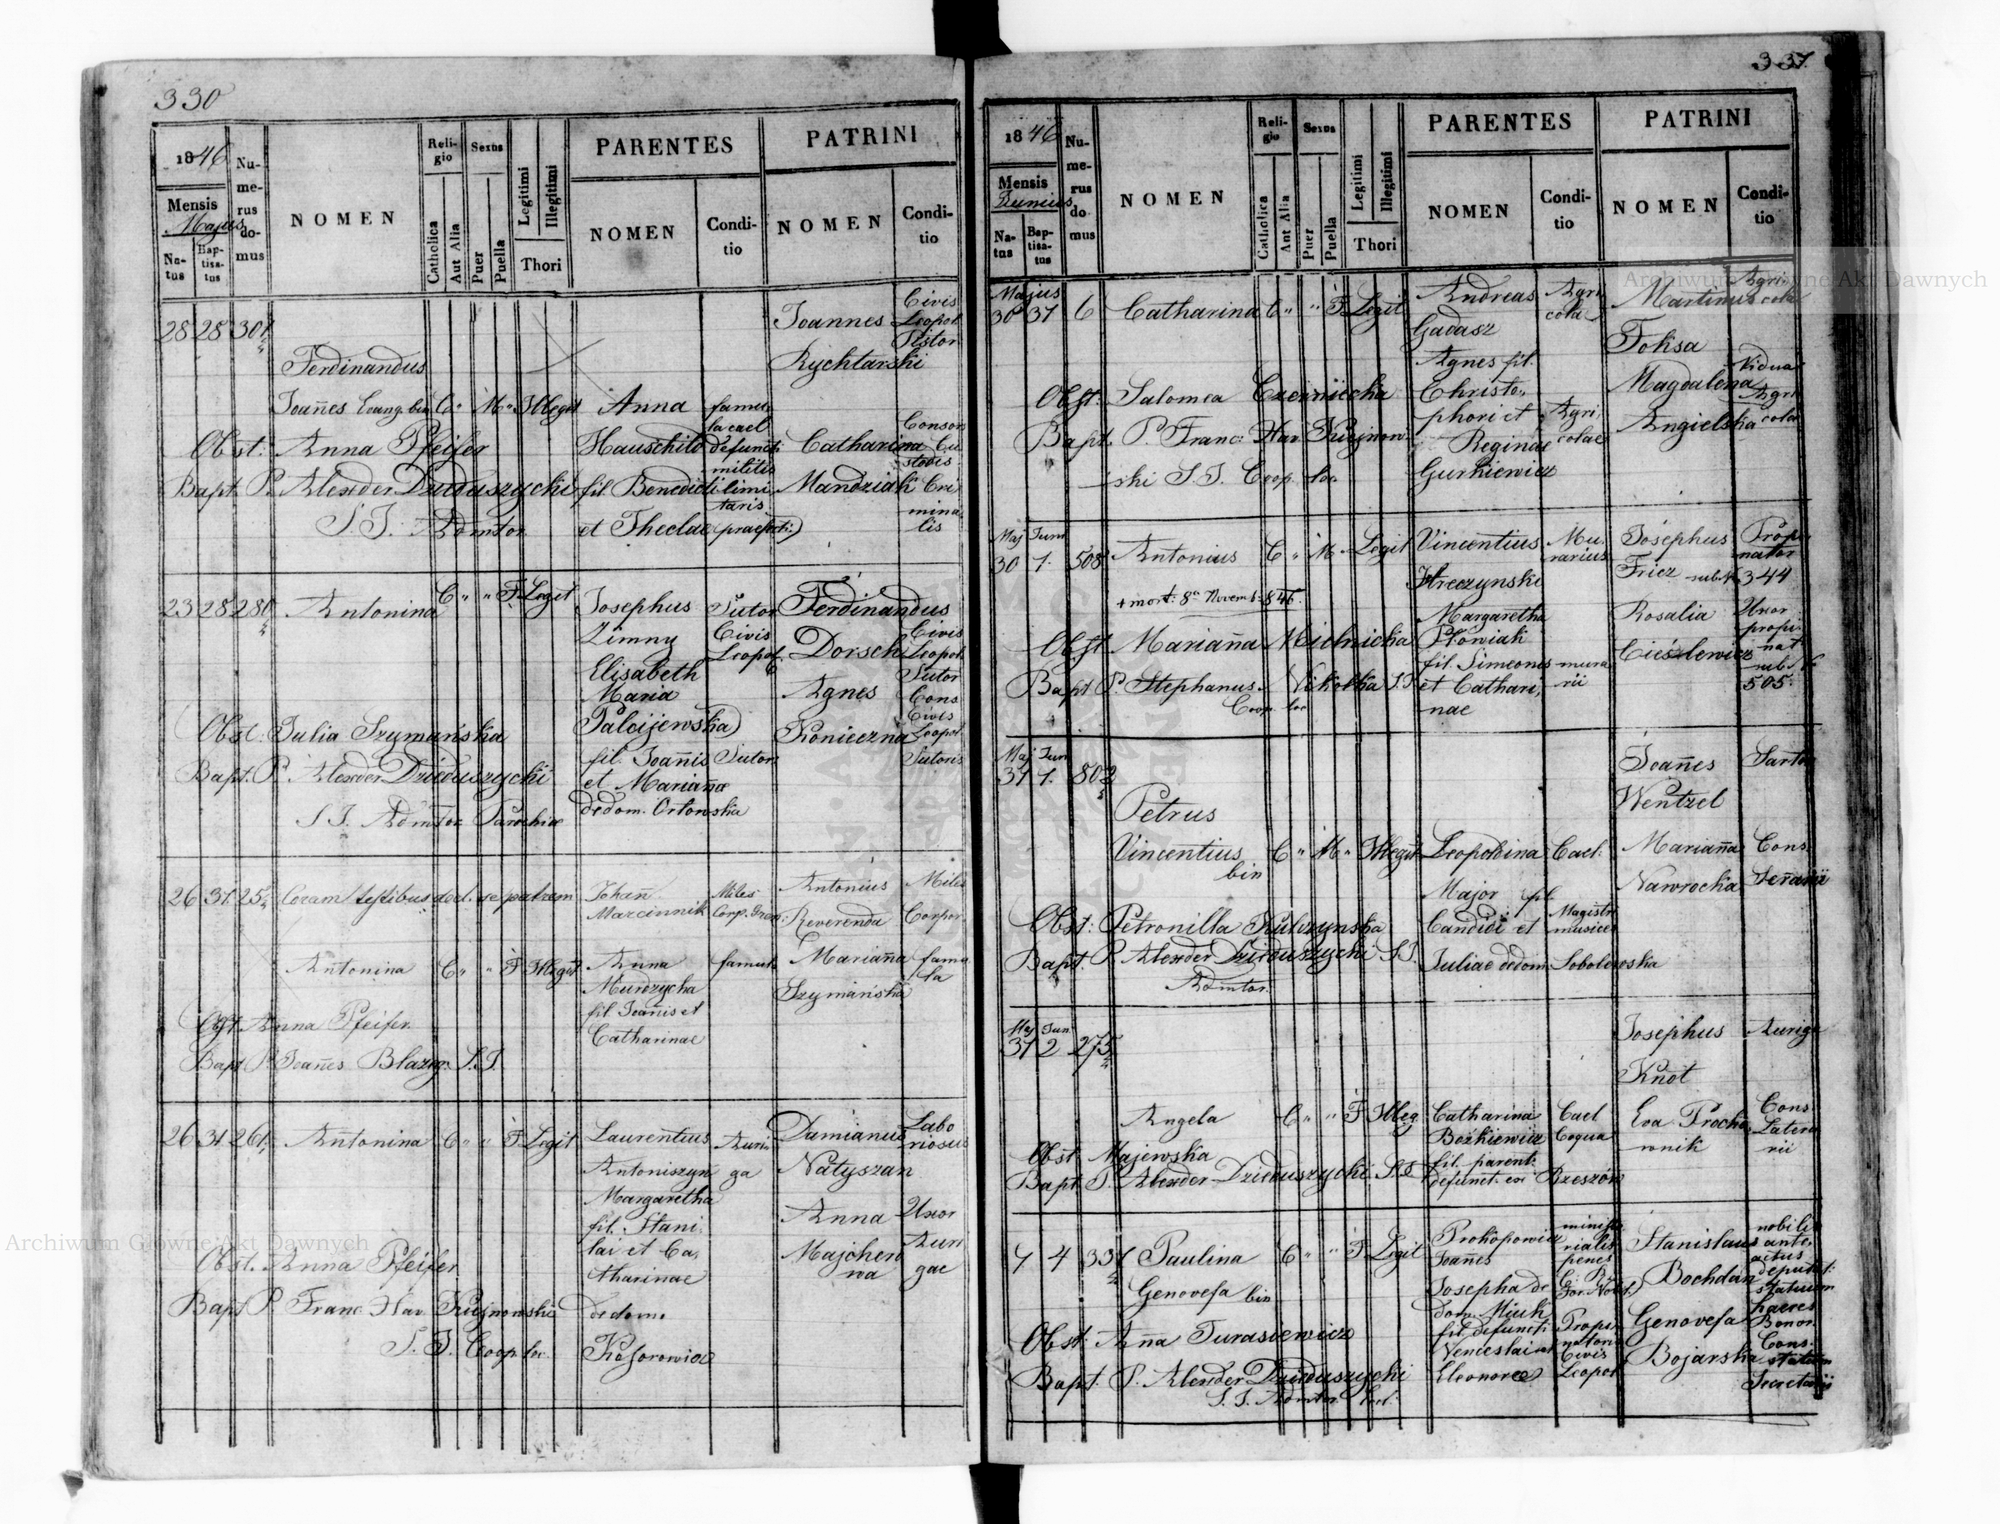 330
1846
Mensis
Majus
Natus
Baptisatus
Numerus domus
NOMEN
Religio
Catholica
Aut Alia
Sexus
Puer
Puella
Legitimi
Illegitimi
Thori
PARENTES
NOMEN
Conditio
PATRINI
NOMEN
Conditio
28 28 301
Ferdinandus
Joañes Evang. bin C " M " Illegit
Anna
Hauschild
fil. Benedicti
et Theclae
famula cael
defuncti
militis
limitaris
praefecti
Joannes
Rychtarski
Civis
Leopol
Pistor
Catharina
Mandziak
Consors
Custodis
Criminalis
Obst: Anna Pfeifer
Bapt. P. Alexder Dzieduszycki
S. J. Admtor
23 28 280
Antonina C " " F. Legit
Josephus
Zimny
Elisabeth
Maria
Palcijewska
fil. Joañis
et Mariañae
de dom. Orłowska
Sutor
Civis
Leopol.
Sutor.
Ferdinandus
Dorsch
Agnes
Konieczna
Civis
Leopol.
Sutor
Cons
Civis
Leopol
Sutoris
Obst: Julia Szymańska
Bapt. P. Alexder Dzieduszycki
S J. Admtor Parochiae
26 31 25 Coram testibus decl. se patrem
Johañ
Marcinnik
Miles
Corp. Gran.
Antonius
Reverenda
Miles
Corpor.
Antonina C " " F Illegit
Anna
Mudrycha
fil Joañis et
Catharinae
famula
Mariaña
Szymańska
famula
Obst. Anna Pfeifer.
Bapt P. Joañes Blazeg. S. J.
26 31 261 Antonina C " " F. Legit
Laurentius
Antoniszyn
Margaretha
fil. Stanilai et Catharinae
de dom.
Kosorowicz
Auriga
Damianus
Natyszan
Anna
Majcherowa
Laboriosus
Uxor
Aurigae
Obst. Anna Pfeifer
Bapt P. Franc. Xav. Kujnowski
S. J. Coop. loc.
337.
1846
Mensis
Junius
Natus
Baptisatus
Numerus domus
NOMEN
Religio
Catholica
Aut Alia
Sexus
Puer
Puella
Legitimi
Illegitimi
Thori
PARENTES
NOMEN
Conditio
PATRINI
NOMEN
Conditio
Majus
30 31 6 Catharina C " " F. Legit
Andreas
Gadasz
Agnes fil.
Christophori et
Reginae
Gurkiewicz
Agricola
Agricolae
Martinus
Foksa
Magdalena
Angielska
Agricola
Vidua
Agricolae
Obst. Salomea Czerniecka
Bapt. P. Franc: Xav. Kujnowski S. J. Coop. loc.
Maj Juni
30 1. 508 Antonius C " M " Legit
+ mort: 8ª Novemb. 846.
Vincentius
Hreczynski
Margaretha
Płowiak
fil. Simeonis
et Catharinae
Murarius
murarii
Josephus
Fricz sub N 344
Rosalia
Cieszlewicz
Propinator
Uxor
propinat
sub N
505.
Obst. Mariaña Mielnicka
Bapt. P. Stephanus Nikolka S. J.
Coop. loc
Maj Jun
31 1. 802
Petrus
Vincentius C " M " Illegit
bin
Leopoldina
Major fil
Candidi et
Juliae de dom. Sobolewska
Cael.
Magistri
musices
Joañes
Wentzel
Mariaña
Nawrocka
Sartor
Cons.
Obst: Petronilla Kulczynska
Bapt. P. Alexder Dzieduszycki S. J.
Admtor.
Maj Jun.
31 2 275
Angela C " " F Illeg.
Catharina
Bożkiewicz
fil. parent.
defunct. ex Rzeszów
Cael
Coqua
Josephus
Knot
Eva Prochownik
Auriga
Cons
Laterarii
Obst. Majewska
Bapt. P. Alexder Dzieduszycki S. J.
4 4 331 Paulina C " " F Legit
Genovefa bin
Prokopowicz
Joañes
Josepha de
dom. Miuk
fil. defuncti
Venceslai et
Eleonorae
ministerialis
penes
Propinatoris
Civis
Leopol
Stanislaus
Bochdan
Genovefa
Bojarska
nobilis
anteactus
deputat.
statuum
haeres
Bonor.
Cons.
statuum
Secretarii
Obst: Aña Turasiewicz
Bapt. P. Alexder Dzieduszycki
S. J. Admtor loci.
Archiwum Główne Akt Dawnych
Archiwum Główne Akt Dawnych